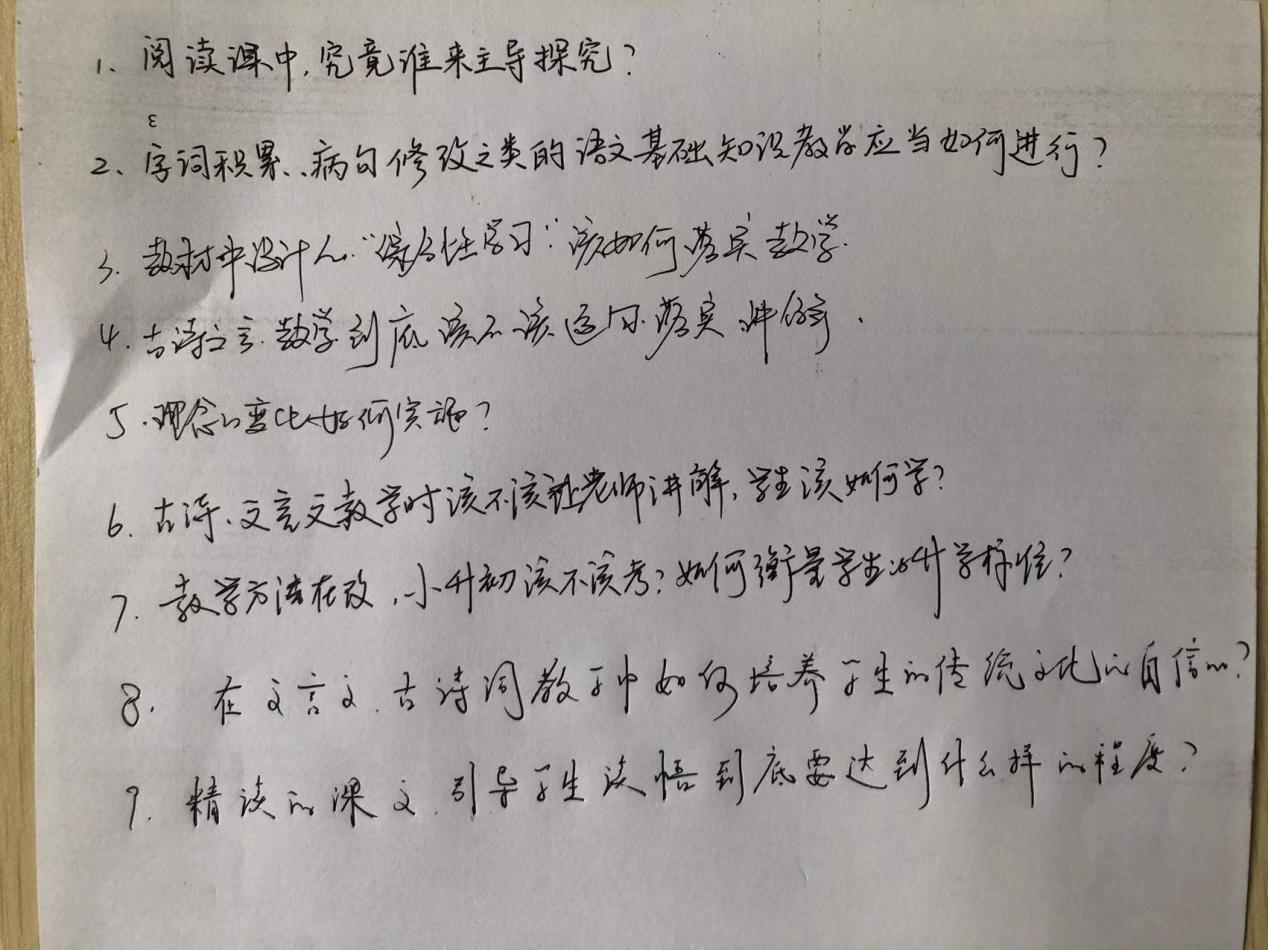 1、阅读课中,究竟谁来主导探究?
ε
2、字词积累、病句修改之类的语文基础知识教学应当如何进行?
3. 教材中设计的“综合性学习”该如何落实教学.
4. 古诗文言教学到底该不该逐句落实讲解.
5.理念的变化如何实施?
6. 古诗、文言文教学时该不该让老师讲解,学生该如何学?
7. 教学方法在改,小升初该不该考?如何衡量学生的升学标准?
8. 在文言文.古诗词教学中如何培养学生的传统文化的自信心?
9. 精读的课文.引导学生读悟到底要达到什么样的程度?